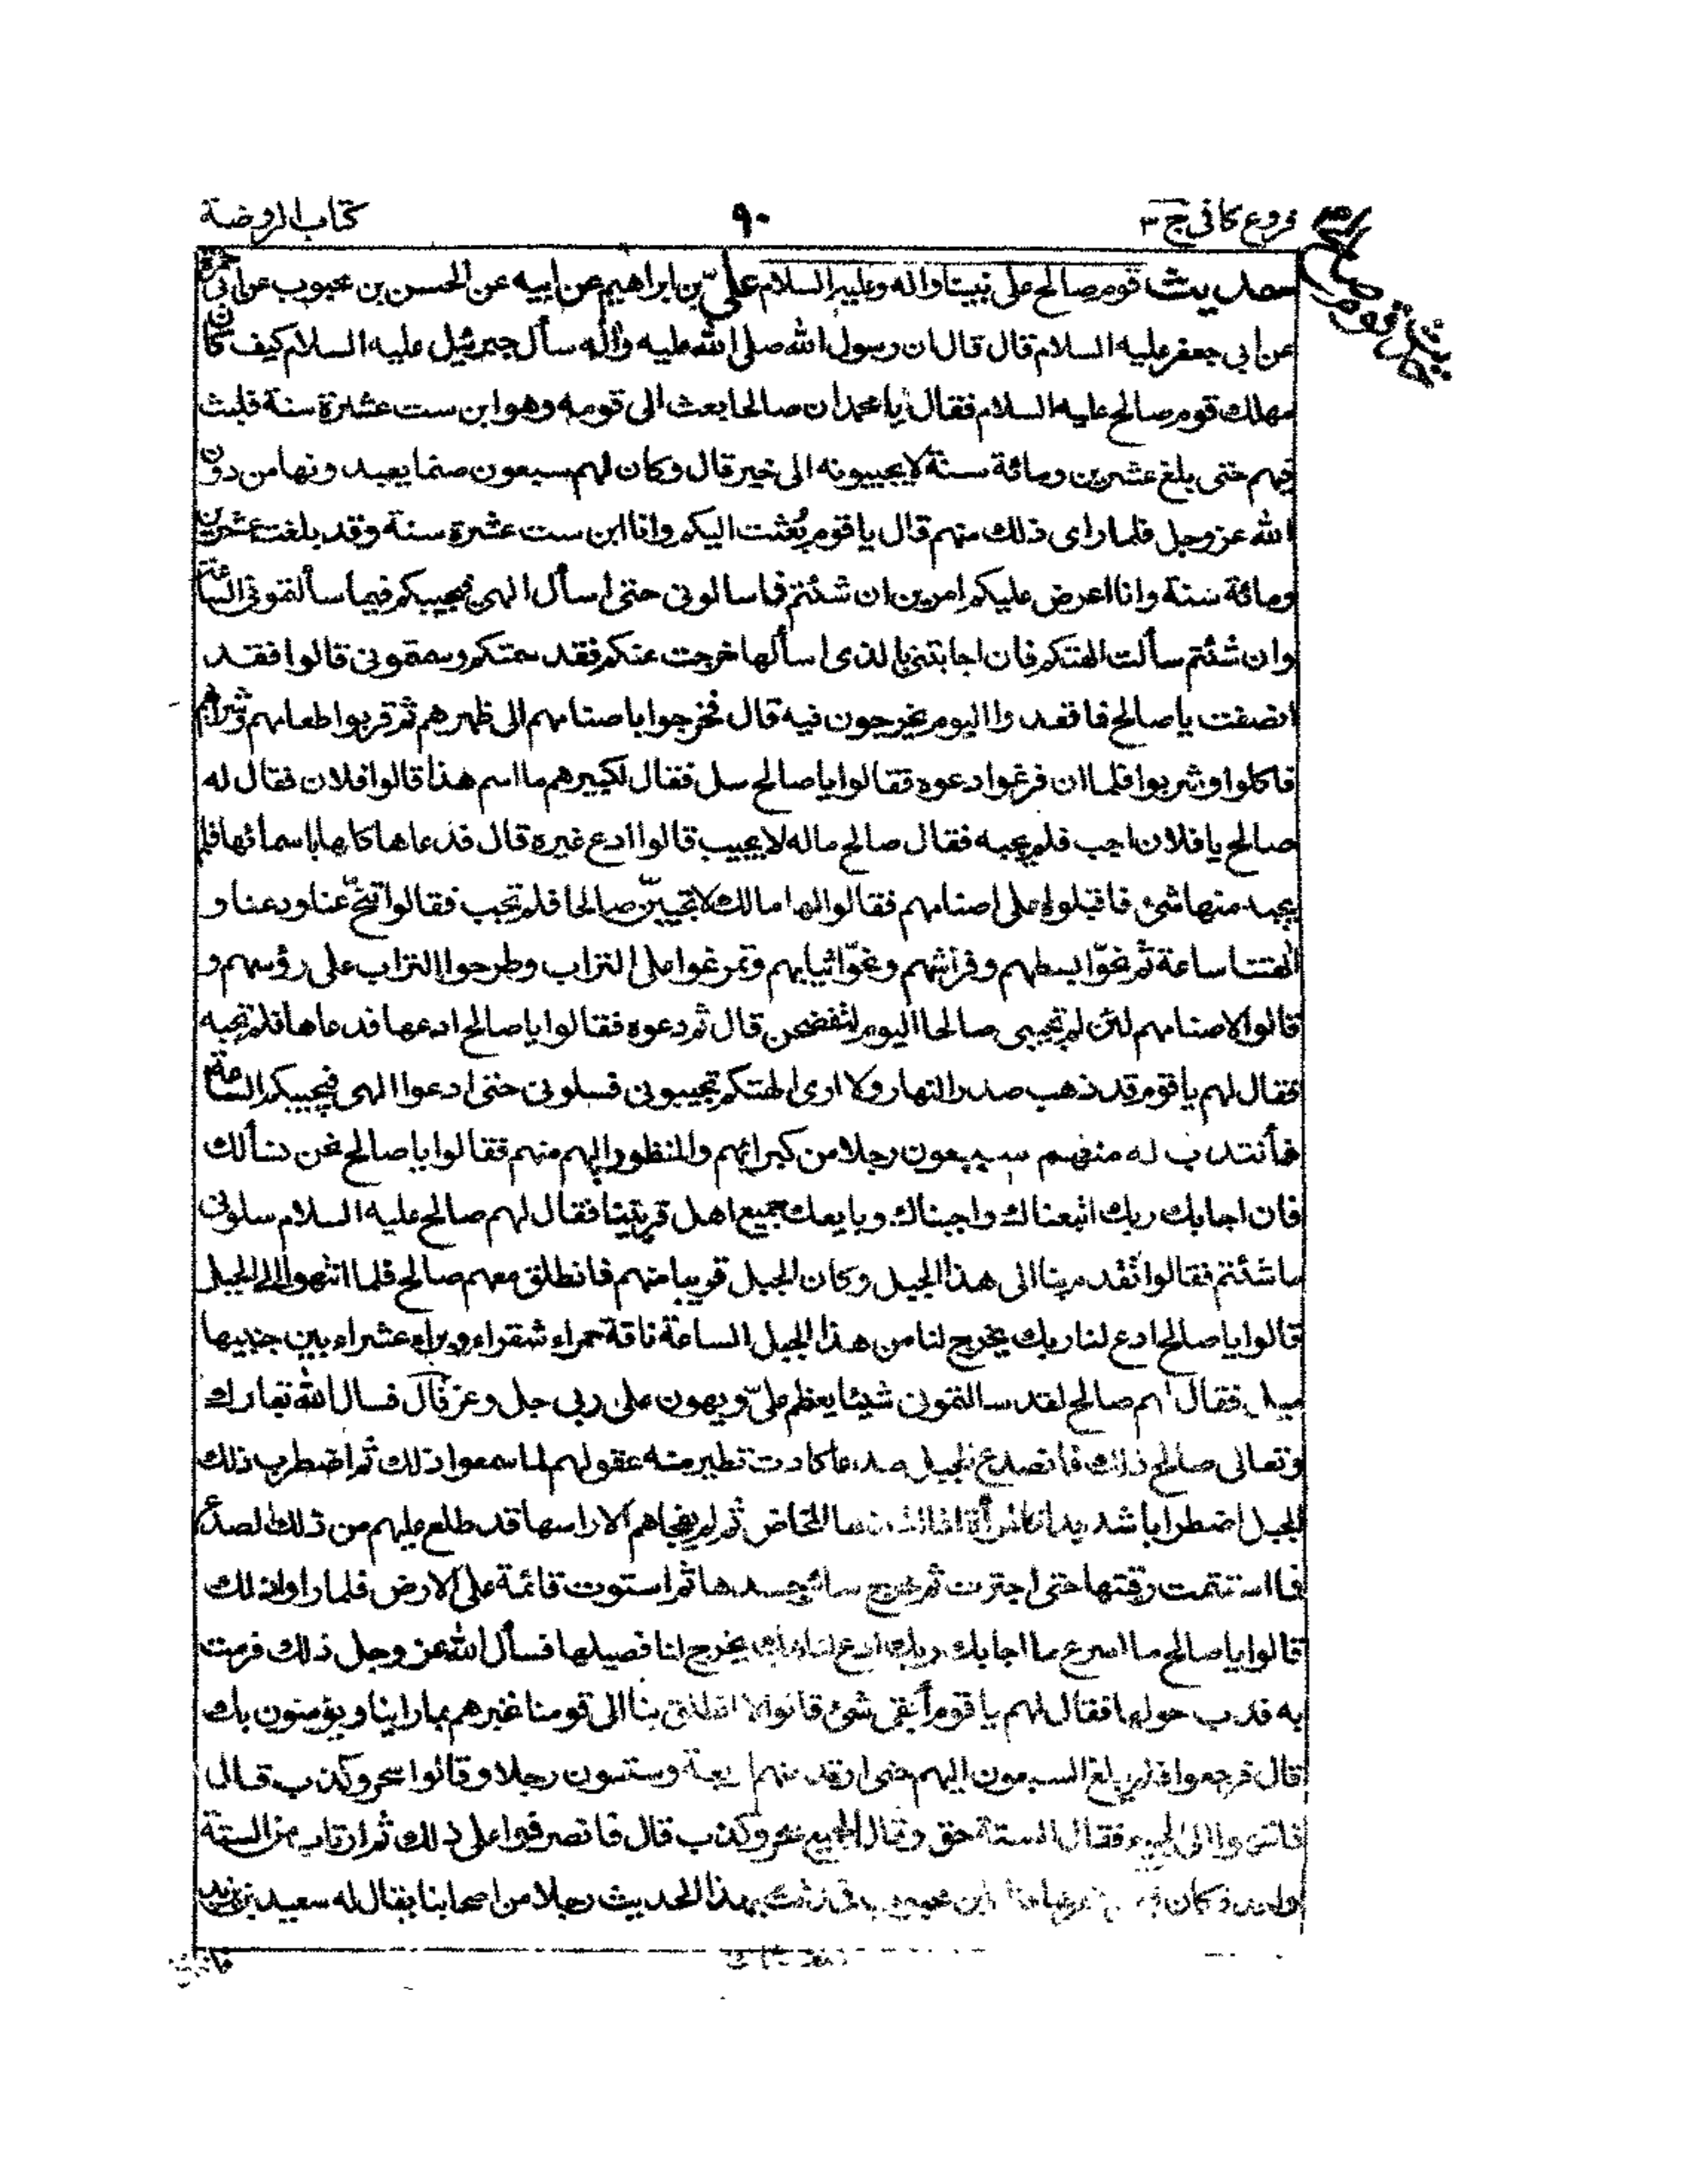 فروع كافى ج ٣
٩٠
كتاب الروضة
حديث قوم صالح
حديث قوم صالح على نبينا واله وعليه السلام علىّ بن ابراهيم عن ابيه عن الحسن بن محبوب عن ابى حمزة
عن ابى جعفر عليه السلام قال قال ان رسول الله صلى الله عليه واله سأل جبرئيل عليه السلام كيف كان
مهلك قوم صالح عليه السلام فقال يا محمد ان صالحا بعث الى قومه وهو ابن ست عشرة سنة فلبث
فيهم حتى بلغ عشرين ومائة سنة لا يجيبونه الى خير قال وكان لهم سبعون صنما يعبدونها من دون
الله عز وجل فلما راى ذلك منهم قال يا قوم بُعثت اليكم وانا ابن ست عشرة سنة وقد بلغت عشرين
ومائة سنة وانا اعرض عليكم امرين ان شئتم فاسالونى حتى اسأل الهى فيجيبكم فيما سألتمونى الساعة
وان شئتم سألت الهتكم فان اجابتنى بالذى اسألها خرجت عنكم فقد سئمتكم وسئمتمونى قالوا فقد
انصفت يا صالح فاتعدوا اليوم يخرجون فيه قال فخرجوا باصنامهم الى ظهرهم ثم قربوا طعامهم وشرابهم
فاكلوا وشربوا فلما ان فرغوا دعوه فقالوا يا صالح سل فقال لكبيرهم ما اسم هذا قالوا فلان فقال له
صالح يا فلان اجب فلم يجبه فقال صالح ماله لا يجيب قالوا ادع غيره قال فدعاها كلها باسمائها فلم
يجبه منها شئ فاقبلوا على اصنامهم فقالوا لها مالك لا تجيبين صالحا فلم تجب فقالوا تنحّ عنا ودعنا و
الهتنا ساعة ثم نحّوا بسطهم وفرشهم ونحّوا ثيابهم وتمرغوا على التراب وطرحوا التراب على رؤسهم و
قالوا لاصنامهم لئن لم تجيبى صالحا اليوم لتفضحن قال ثم دعوه فقالوا يا صالح ادعها فدعاها فلم تجبه
فقال لهم يا قوم قد ذهب صدر النهار ولا ارى الهتكم تجيبونى فسلونى حتى ادعوا الهى فيجيبكم الساعة
فأنتدب له منهم سبعون رجلا من كبرائهم والمنظور اليهم منهم فقالوا يا صالح نحن نسألك
فان اجابك ربك اتبعناك واجبناك ويبايعك جميع اهل قريتنا فقال لهم صالح عليه السلام سلونى
ما شئتم فقالوا تقدم بنا الى هذا الجبل وكان الجبل قريبا منهم فانطلق معهم صالح فلما انتهوا الى الجبل
قالوا يا صالح ادع لنا ربك يخرج لنا من هذا الجبل الساعة ناقة حمراء شقراء وبراء عشراء بين جنبيها
ميل فقال لهم صالح لقد سالتمونى شيئا يعظم علىّ ويهون على ربى جل وعز قال فسال الله تبارك
وتعالى صالح ذلك فانصدع الجبل صدعا كادت تطير منه عقولهم لما سمعوا ذلك ثم اضطرب ذلك
الجبل اضطرابا شديدا كالمرأة اذا اخذها المخاض ثم لم يفجاهم الا راسها قد طلع عليهم من ذلك الصدع
فما استتمت رقبتها حتى اجترت ثم خرج سائر جسدها ثم استوت قائمة على الارض فلما راوا ذلك
قالوا يا صالح ما اسرع ما اجابك ربك ادع لنا ربك يخرج لنا فصيلها فسأل الله عز وجل ذلك فرمت
به فدب حولها فقال لهم يا قوم أبقى شئ قالوا لا انطلق بنا الى قومنا نخبرهم بما راينا ويؤمنون بك
قال فرجعوا فلم يبلغ السبعون اليهم حتى ارتد منهم اربعة وستون رجلا وقالوا سحر وكذب قال
فانتهوا الى الجميع فقال الستة حق وقال الجميع سحر وكذب قال فانصرفوا على ذلك ثم ارتاب من الستة
واحد فكان ابن محبوب فحدثت بهذا الحديث رجلا من اصحابنا يقال له سعيد بن يزيد